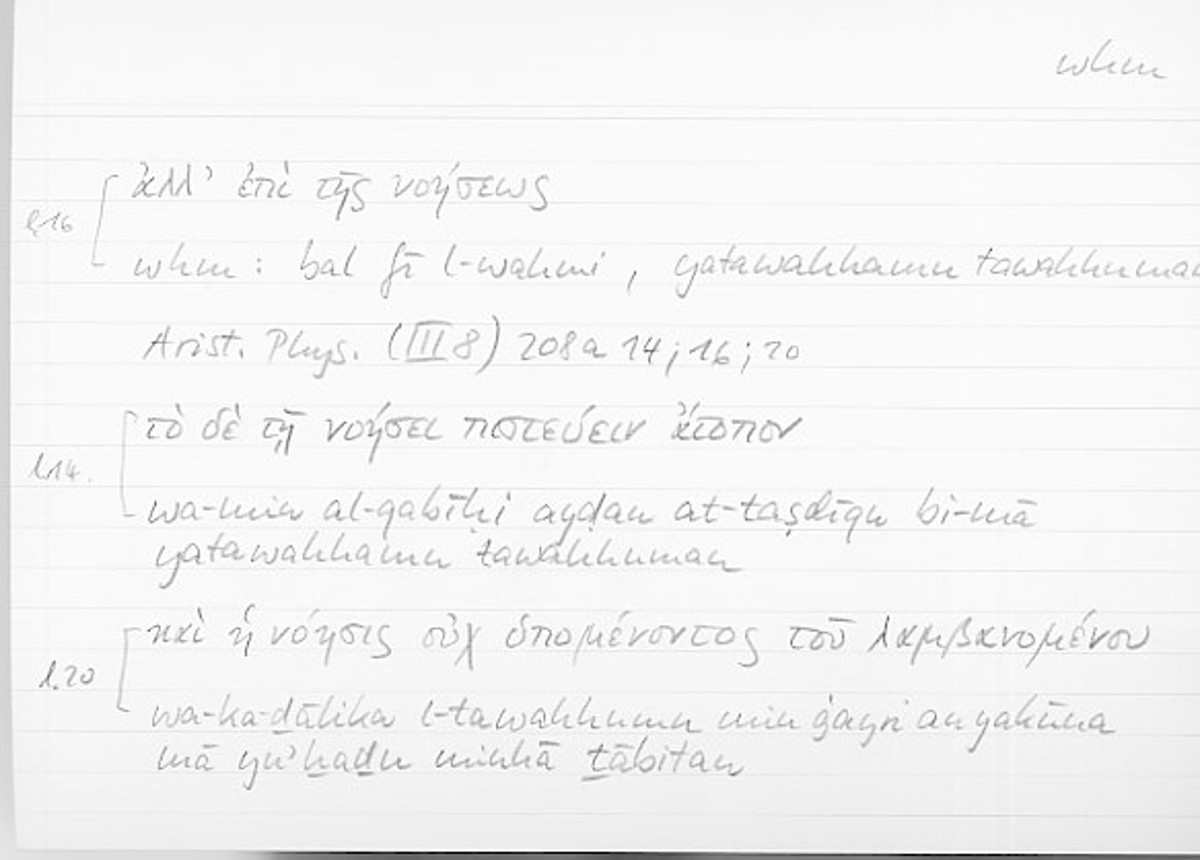 whm
l.16
ἀλλ' ἐπὶ τῆς νοήσεως
whm: bal fī l-wahmi, yatawahhamu tawahhuman
Arist. Phys. (III 8) 208a 14; 16; 20
l.14.
τὸ δὲ τῇ νοήσει πιστεύειν ἄτοπον
wa-min al-qabīḥi ayḍan at-taṣdīqu bi-mā
yatawahhamu tawahhuman
l.20
καὶ ἡ νόησις οὐχ ὑπομένοντος τοῦ λαμβανομένου
wa-ka-ḏālika l-tawahhumu min ġayri an yakūna
mā yu'ḫaḏu minhā ṯābitan